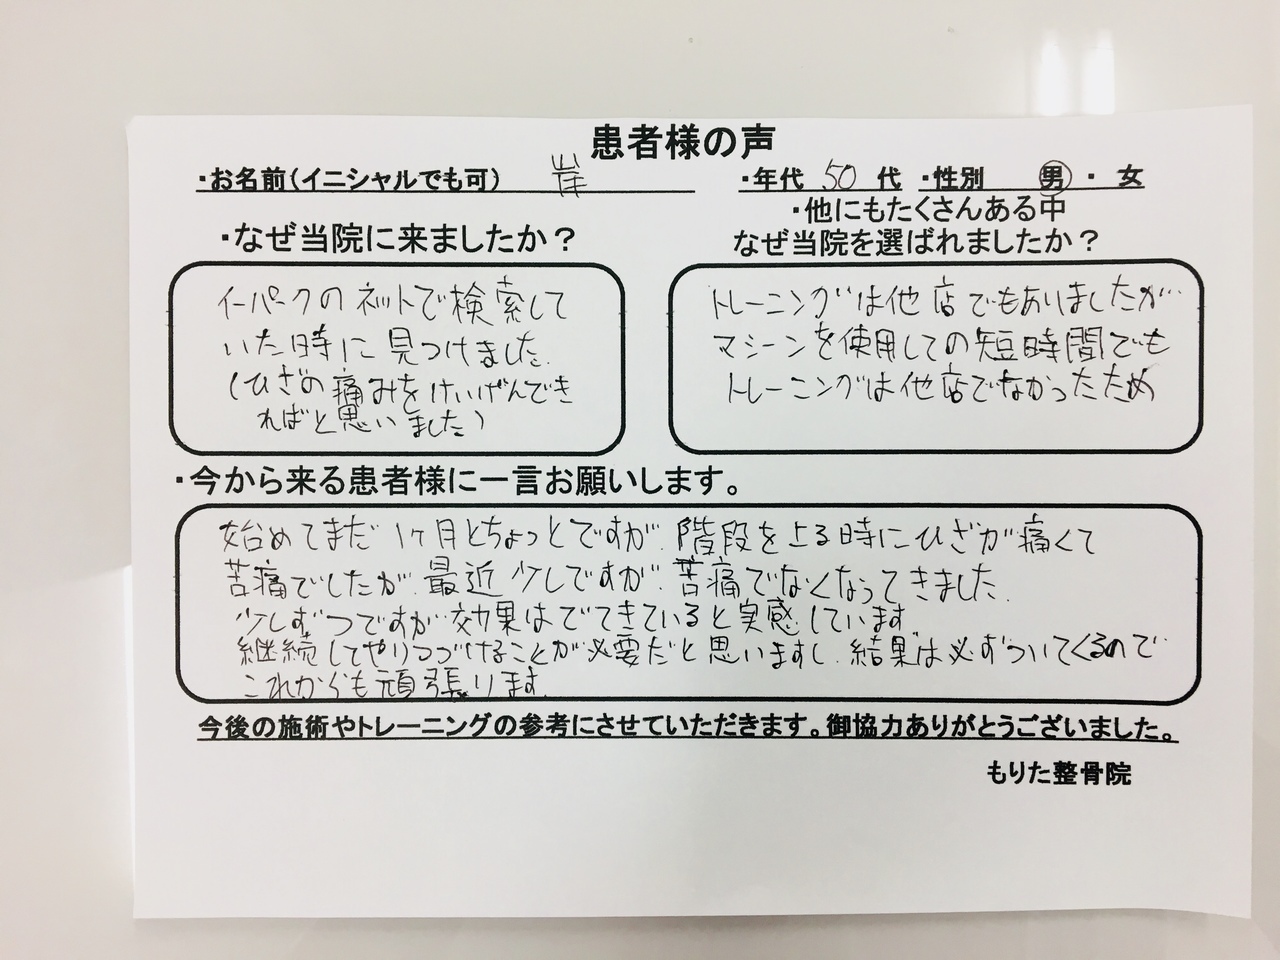 患者様の声
・お名前(イニシャルでも可) 岸
・年代 50 代 ・性別 男・女
・なぜ当院に来ましたか？
イーパークのネットで検索して
いた時に見つけました.
(ひざの痛みをけいげんでき
ればと思いました)
・他にもたくさんある中
なぜ当院を選ばれましたか？
トレーニングは他店でもありましたが…
マシーンを使用しての短時間でも
トレーニングは他店でなかったため
・今から来る患者様に一言お願いします。
始めてまだ1ヶ月とちょっとですが.階段を上る時にひざが痛くて
苦痛でしたが.最近少しですが.苦痛でなくなってきました.
少しずつですが効果はでてきていると実感しています.
継続してやりつづけることが必要だと思いますし.結果は必ずついてくるので
これからも頑張ります.
今後の施術やトレーニングの参考にさせていただきます。御協力ありがとうございました。
もりた整骨院